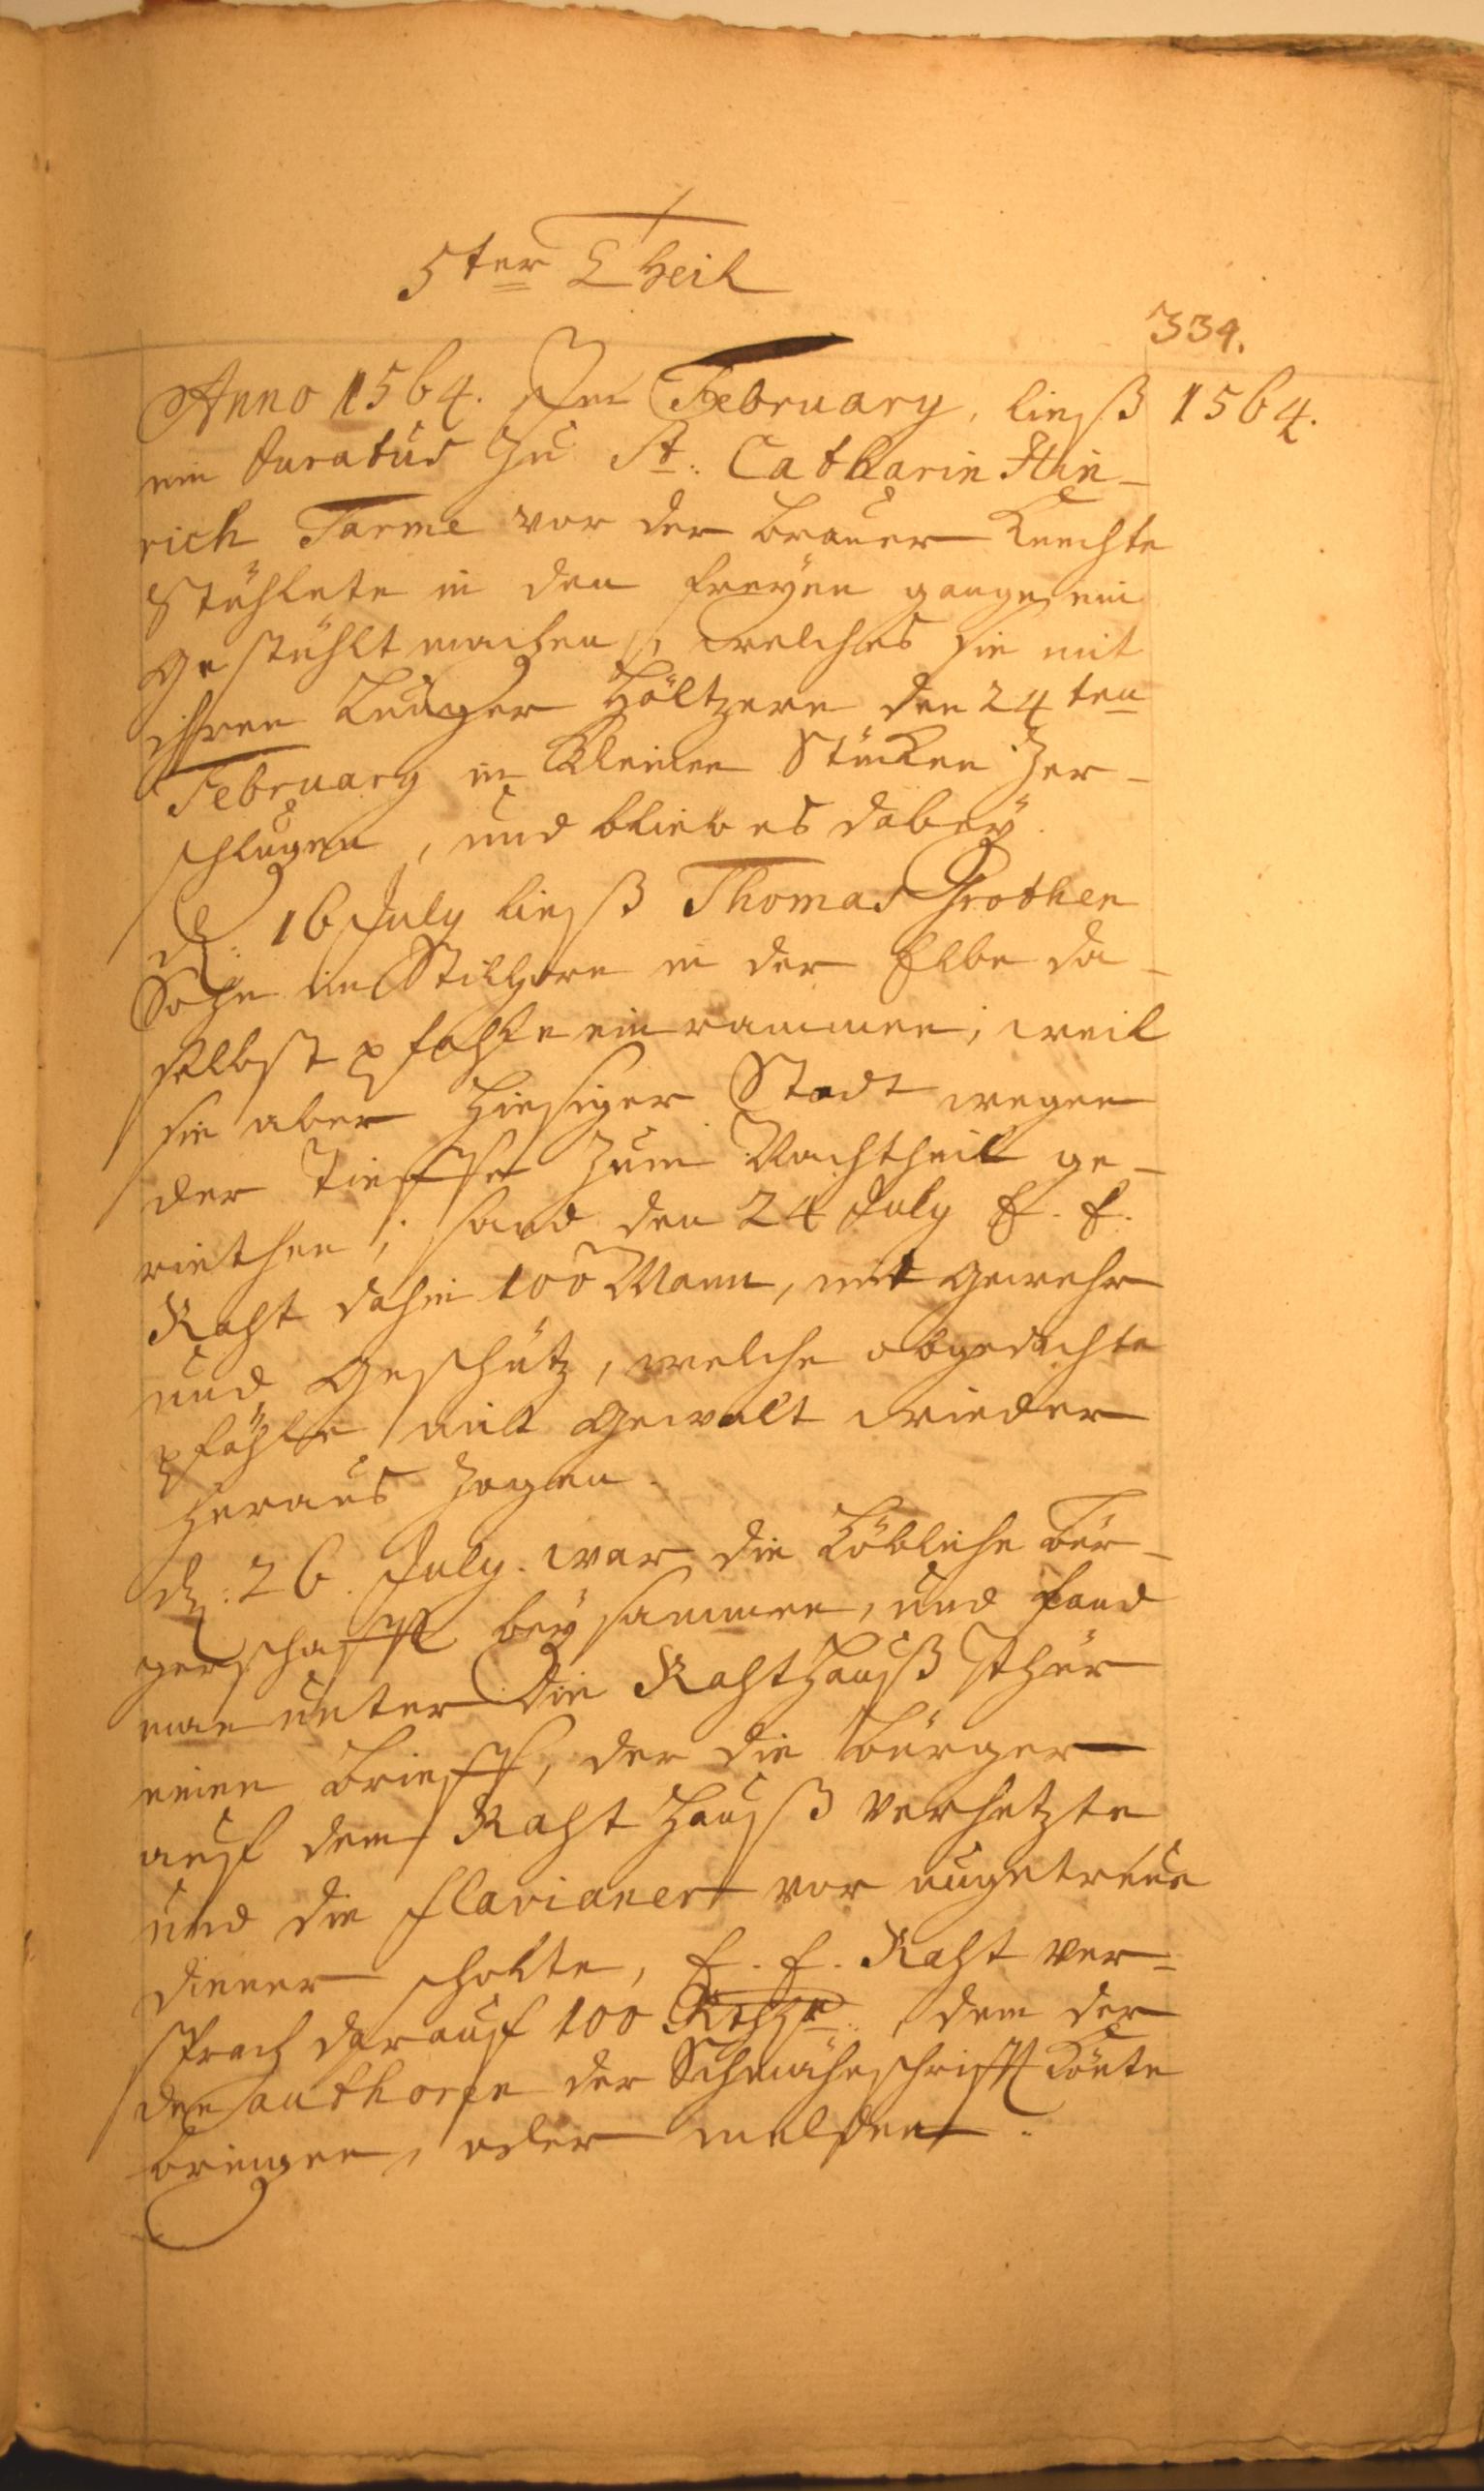 5ter Theil
334.
Anno 1564. Im February, ließ 1564.
ein Juratus Zu St. Catharin Hin-
rich Tarme vor der brauer Knechte
Stühlete in den freÿen gange ein
gestühlt machen, welches sie mit
ihren Träger Höltzern den 24ten
February in Kleinen Stücken Zer-
schlugen, und blieb es dabeÿ.
d: 16 July ließ Thomas Grothen
Sohn in Stillhorn in der Elbe da-
selbst pfahle ein rammen, weil
sie aber hiesiger Stadt wegen
der Tieffe zum Nachtheil ge-
riethen, sand den 24 July E. E.
Raht dahin 100 Mann, mit gewehr
und Geschütz, welche obgedachte
pfähle mit Gewalt wieder
heraus Zogen.
d: 26. July. war die Löbliche bür-
gerschafft beÿsammen, und fand
man unter die Rahthauß Thür
einen brieff, der die bürger
auf dem Raht Hauß verhetzte
und die Clavianer vor ungetreue
diener scholte, E. E. Raht ver-
sprach darauf 100 Rthlr. dem der
den authoren der Schmäheschrifft Könte
bringen, oder melden.